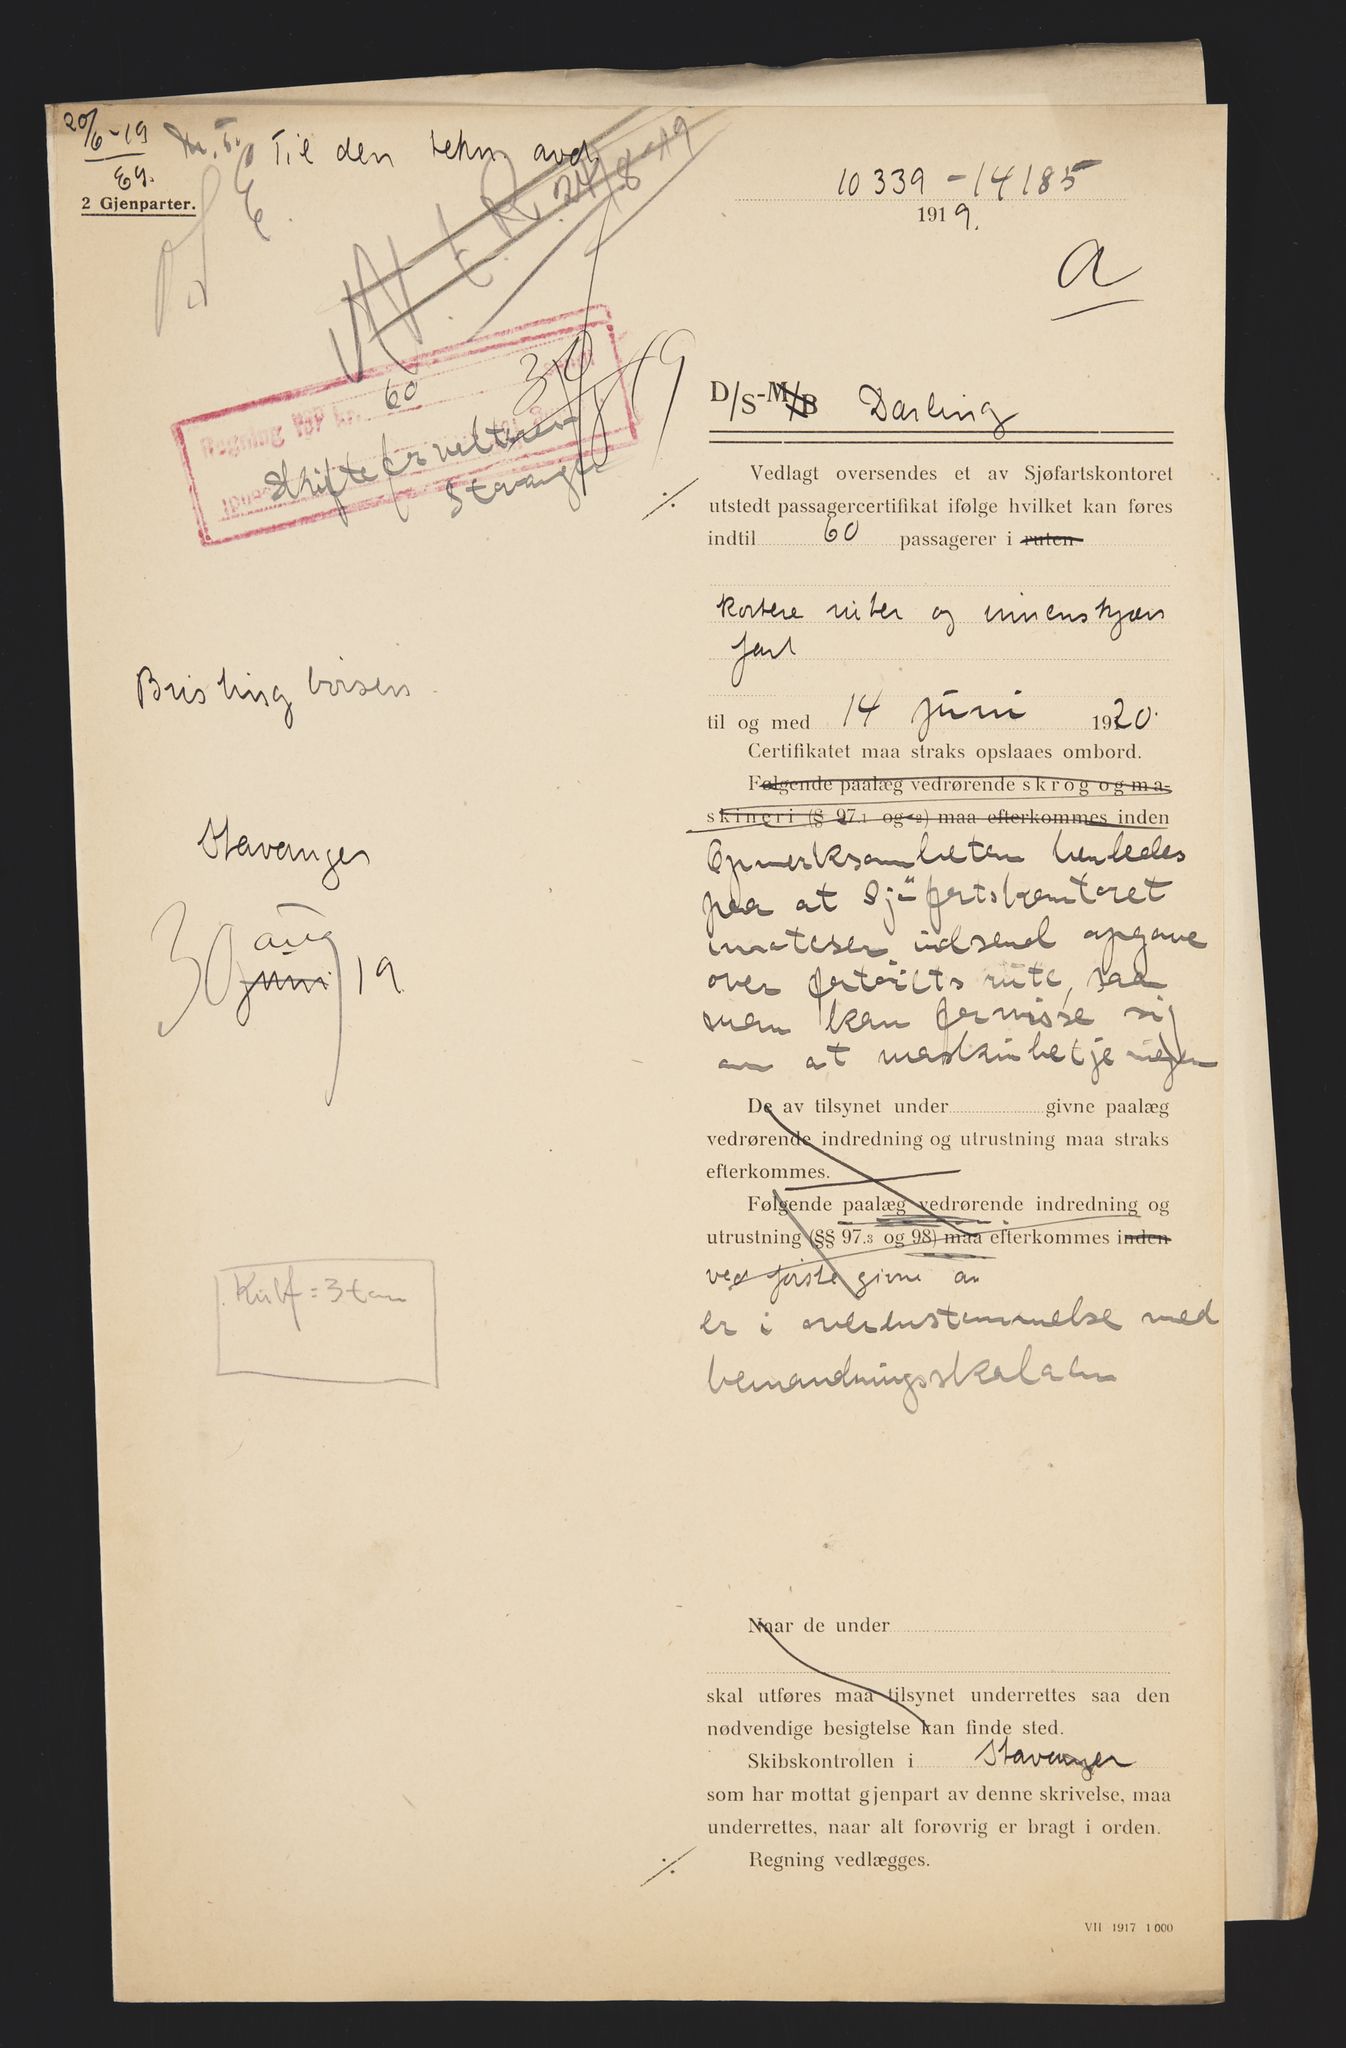 20/6-19
Eg.
2 Gjenparter.
Til den tekn. avd.
24/8-19
10339-14185
1919.
a
Regning for kr. 60
30/8 19
Stavanger
D/S-M/B Darling
Vedlagt oversendes et av Sjøfartskontoret
utstedt passagercertifikat ifølge hvilket kan føres
indtil 60 passagerer i ruten
kortere ruter og innenskjærs
fart
Brislingbörsen
til og med 14 juni 1920.
Certifikatet maa straks opslaaes ombord.
Følgende paalæg vedrørende skrog og ma-
skineri (§ 97.1 og 2) maa efterkommes inden
Stavanger
Opmerksomheten henledes
paa at Sjöfartskontoret
30 aug juni 19
maa indsend opgave
over fartöiets rute, saa
man kan forvisse sig
om at maskinbetjeningen
De av tilsynet under givne paalæg
vedrørende indredning og utrustning maa straks
efterkommes.
Følgende paalæg vedrørende indredning og
utrustning (§§ 97.3 og 98) maa efterkommes inden
ved første givne an
er i overenstemmelse med
bemandningsskalaen
Naar de under
skal utføres maa tilsynet underrettes saa den
nødvendige besigtelse kan finde sted.
Skibskontrollen i Stavanger
som har mottat gjenpart av denne skrivelse, maa
underrettes, naar alt forøvrig er bragt i orden.
Regning vedlægges.
VII 1917 1000